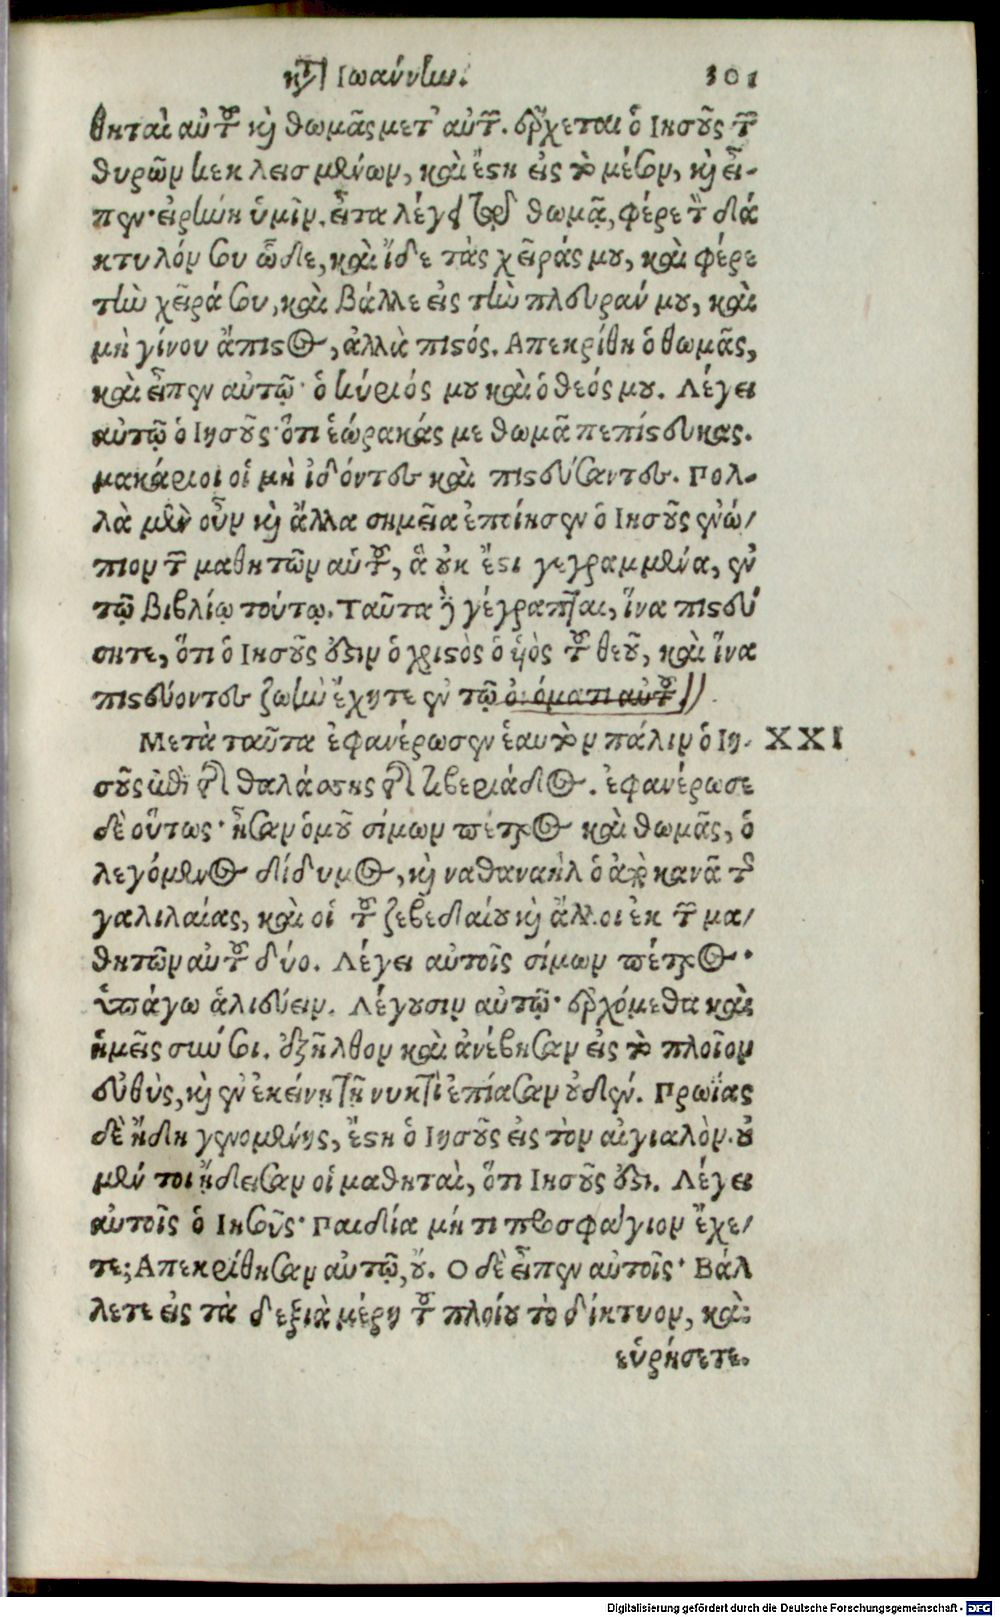 κατὰ Ἰωάννην. 301
θηταὶ αὐτοῦ καὶ θωμᾶς μετ' αὐτῶν. ἔρχεται ὁ Ἰησοῦς τῶν
θυρῶν κεκλεισμένων, καὶ ἔστη εἰς τὸ μέσον, καὶ εἶ-
πεν· εἰρήνη ὑμῖν. εἶτα λέγει τῷ θωμᾷ, φέρε τὸν δά
κτυλόν σου ὧδε, καὶ ἴδε τὰς χεῖράς μου, καὶ φέρε
τὴν χεῖρά σου, καὶ βάλλε εἰς τὴν πλευράν μου, καὶ
μὴ γίνου ἄπιστος, ἀλλὰ πιστός. Ἀπεκρίθη ὁ θωμᾶς,
καὶ εἶπεν αὐτῷ· ὁ κύριός μου καὶ ὁ θεός μου. Λέγει
αὐτῷ ὁ Ἰησοῦς· ὅτι ἑώρακάς με θωμᾶ πεπίστευκας.
μακάριοι οἱ μὴ ἰδόντες καὶ πιστεύσαντες. Πολ-
λὰ μὲν οὖν καὶ ἄλλα σημεῖα ἐποίησεν ὁ Ἰησοῦς ἐνώ/
πιον τῶν μαθητῶν αὑτοῦ, ἃ οὐκ ἔστι γεγραμμένα, ἐν
τῷ βιβλίῳ τούτῳ. Ταῦτα δὲ γέγραπται, ἵνα πιστεύ
σητε, ὅτι ὁ Ἰησοῦς ἐστιν ὁ χριστὸς ὁ υἱὸς τοῦ θεοῦ, καὶ ἵνα
πιστεύοντες ζωὴν ἔχητε ἐν τῷ ὀνόματι αὐτοῦ.
Μετὰ ταῦτα ἐφανέρωσεν ἑαυτὸν πάλιν ὁ Ἰη- XXI
σοῦς ἐπὶ τῆς θαλάσσης τῆς τιβεριάδος. ἐφανέρωσε
δὲ οὕτως· ἦσαν ὁμοῦ σίμων πέτρος καὶ θωμᾶς, ὁ
λεγόμενος δίδυμος, καὶ ναθαναὴλ ὁ ἀπὸ κανᾶ τῆς
γαλιλαίας, καὶ οἱ τοῦ ζεβεδαίου καὶ ἄλλοι ἐκ τῶν μα/
θητῶν αὐτοῦ δύο. Λέγει αὐτοῖς σίμων πέτρος·
ὑπάγω ἁλιεύειν. Λέγουσιν αὐτῷ· ἐρχόμεθα καὶ
ἡμεῖς σὺν σοι. ἐξῆλθον καὶ ἀνέβησαν εἰς τὸ πλοῖον
εὐθὺς, καὶ ἐν ἐκείνῃ τῇ νυκτὶ ἐπίασαν οὐδέν. Πρωΐας
δὲ ἤδη γενομένης, ἔστη ὁ Ἰησοῦς εἰς τὸν αἰγιαλὸν. οὐ
μέν τοι ᾔδεισαν οἱ μαθηταὶ, ὅτι Ἰησοῦς ἐστι. Λέγει
αὐτοῖς ὁ Ἰησοῦς· Παιδία μή τι προσφάγιον ἔχε/
τε; Ἀπεκρίθησαν αὐτῷ, οὔ. Ὁ δὲ εἶπεν αὐτοῖς· Βάλ
λετε εἰς τὰ δεξιὰ μέρη τοῦ πλοίου τὸ δίκτυον, καὶ
εὑρήσετε.
Digitalisierung gefördert durch die Deutsche Forschungsgemeinschaft - DFG